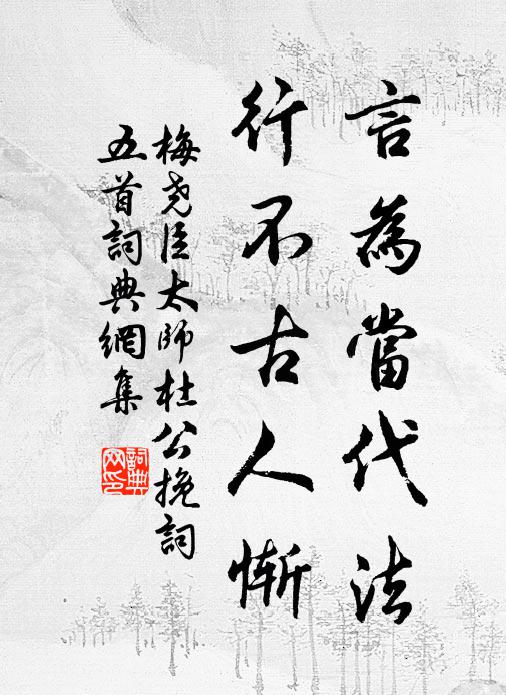 言為當代法
行不古人慚
梅堯臣太師杜公挽詞
五首詞典網集
詞典网印